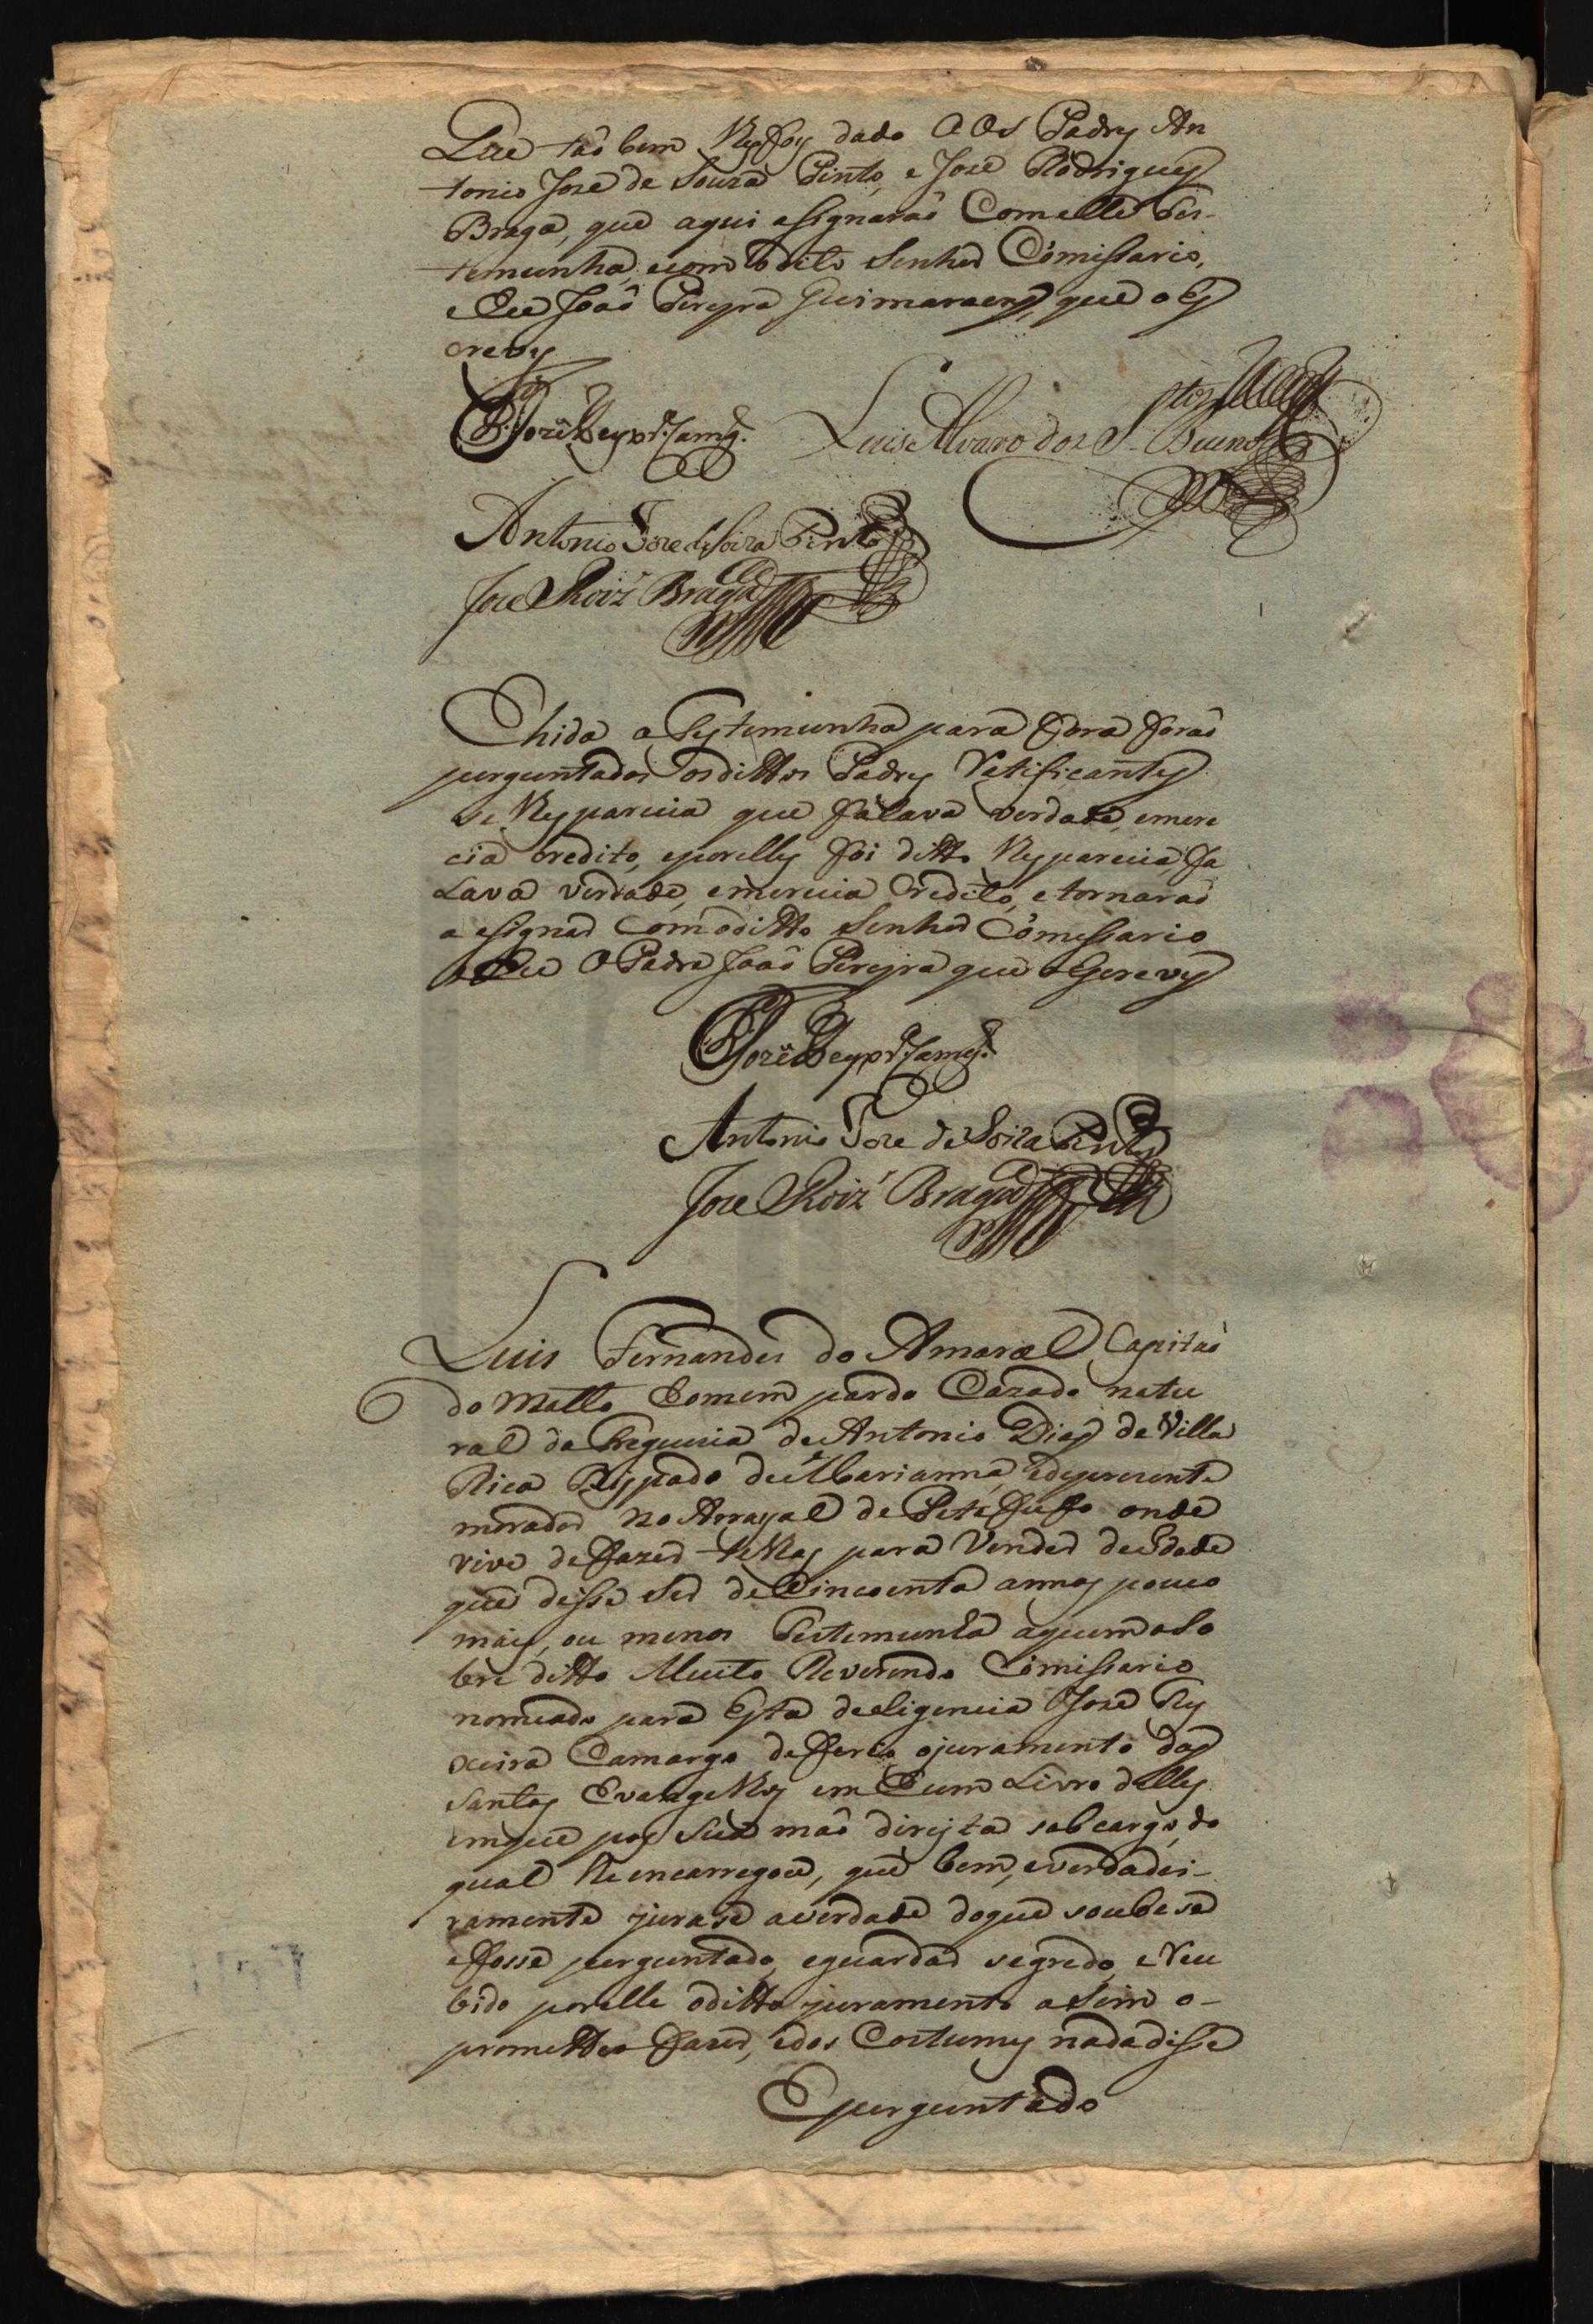 Que tão bem lhes foy dado aos Padres An
tonio Joze de Souza Pinto, e Joze Rodrigues
Braga, que aqui asignarão Com elle Tes-
temunha, e com o dito Senhor Comissario,
e Eu João Pereyra Guimaraens, que o es
crevy
Joze Teyxr.ª Camg.º Luis Alvaro dos S.tos Bueno
Antonio Joze de Soiza Pinto
Joze Roiz' Braga
E hida a Testemunha para fora forão
perguntados os dittos Padres Ratificantes
se lhes parecia que falava verdade, e mere
cia credito, e por elles foi ditto lhes parecia, fa
Lava verdade, e merecia Credito, e tornarão
a asignar Com o ditto Senhor Comissario
e Eu O Padre João Pereyra que o escrevy
Joze Teyxr.ª Camg.º
Antonio Joze de Soiza Pinto
Joze Roiz' Braga
Luis Fernandes do Amaral Capitão
do Matto homem pardo Cazado natu
ral da Freguezia de Antonio Dias de Villa
Rica Bispado de Marianna, e de prezente
morador no Arrayal de
vive de fazer telhas para Vender de Idade
que disse Ser de Cincoenta annos pouco
mais, ou menos Testemunha a quem o So
bre ditto Muito Reverendo Comissario
nomeado para Esta deligencia Joze Tey
xeira Camargo defferio o juramento dos
Santos Evangelhos em hum Livro delles
em que pos Sua mão direyta sob cargo do
qual lhe encarregou, que bem, e verdadei-
ramente jurase a verdade do que soubese
e fosse perguntado, e guardar segredo, e rece
bido por elle o ditto juramento asim o-
prometteo fazer, e dos Costumes nada disse
E perguntado